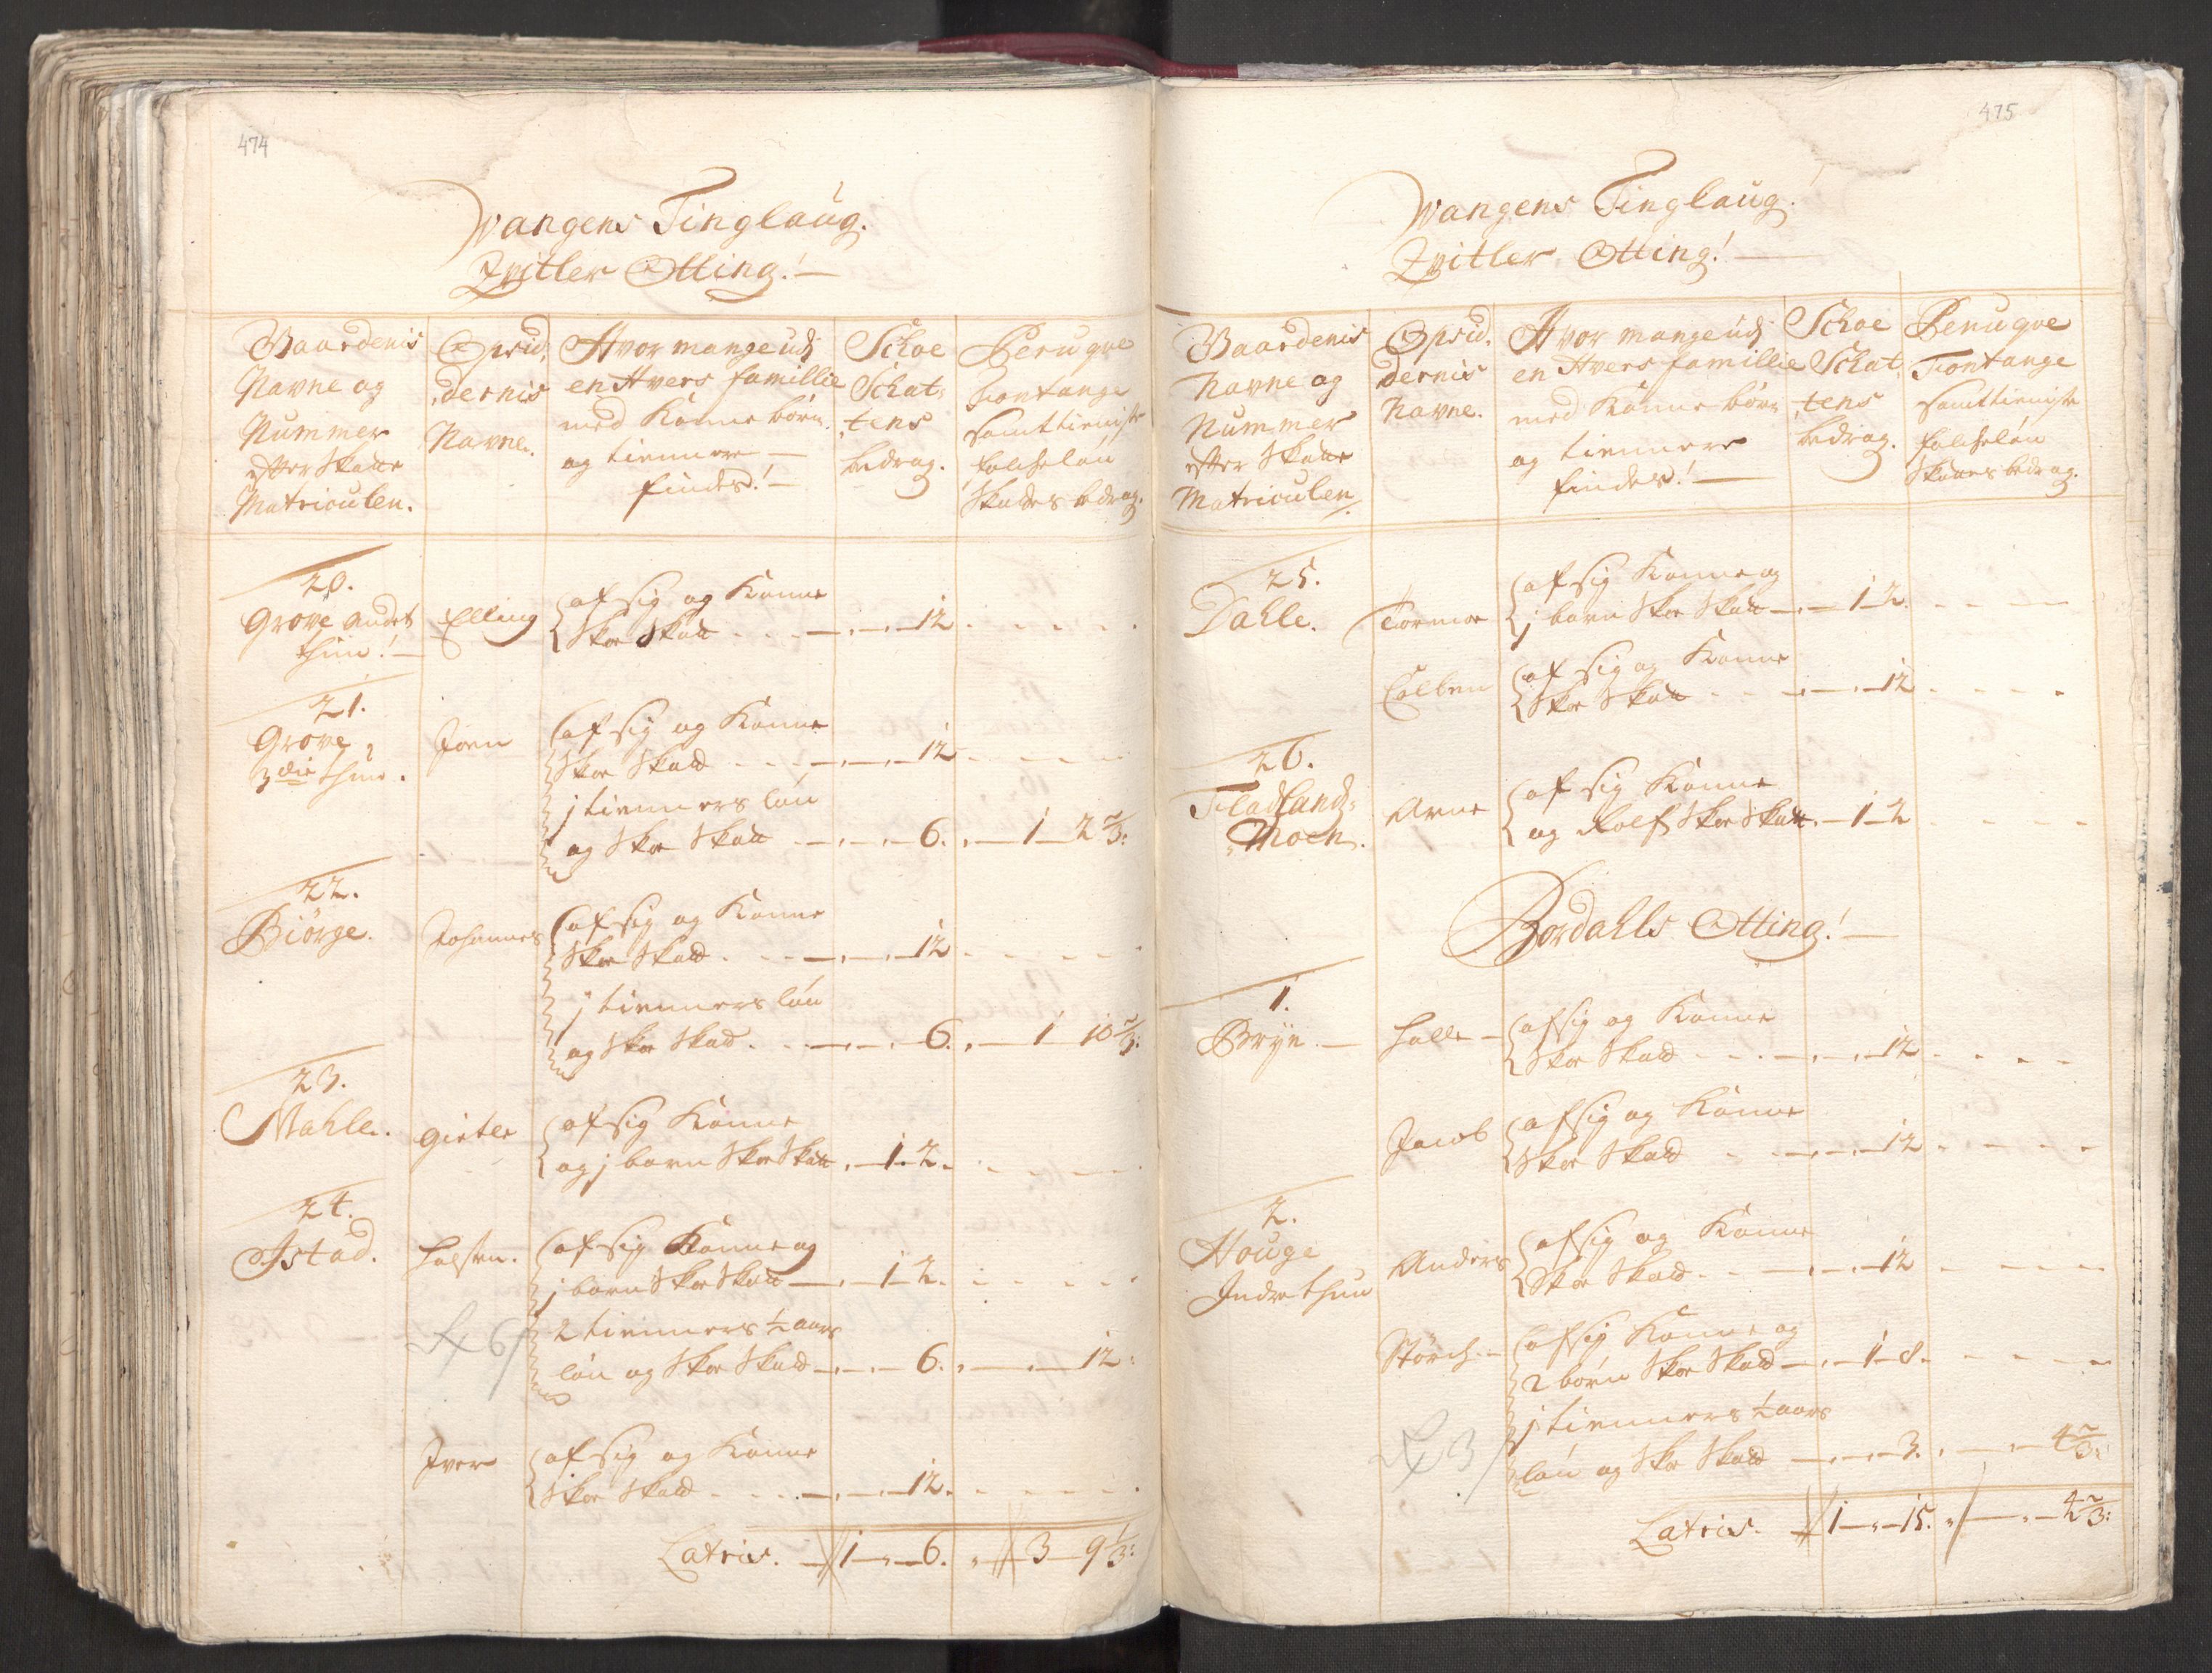 474
Wangens Tinglaug.
Qvitler Otting!
Gaardenis
Navne og
Nummer
efter Skatte
Matriculen.
Opsid,
dernis
Navne.
Hvor mange udj
en Hvers famillie
med Konne börn.
og tiennere
findes!
Schoe
Schat,
tens
bedrag.
Peruqve
Fontange
samt tieniste
folchelön
Skades bedrag.
20.
Grove andet
thun!
Elling
af sig og Konne
Skoe Skatt - - - 12
21.
Grove,
3die thun.
Joen
af sig og Konne
Skoe Skatt - - - 12
1 tienners lön
og Skoe Skatt - - - 6. - 1 - 2 2/3:
22.
Biörge.
Johannes
af sig og Konne
Skoe Skatt - - - 12
1 tienners lön
og Skoe Skatt - - - 6. - 1 - 10 2/3:
23.
Mahle.
Giertee
af sig Konne
og 1 barn Skoe Skatt - 1 - 2.
24.
Istad.
Holsten.
af sig Konne og
1 barn Skoe Skatt - 1 - 2.
2 tienners 1/2 aars
lön og Skoe Skatt - - 6. - - 12:
6/
Iver
af sig og Konne
Skoe Skatt - - - 12.
Latris. 1 - 6. - 3 - 9 1/3:
475
Wangens Tinglaug.
Qvitler Otting!
Gaardenis
Navne og
Nummer
efter Skatte
Matriculen.
Opsid,
dernis
Navne.
Hvor mange udj
en Hvers famillie
med Konne börn
og tiennere
findes!
Schoe
Schat,
tens
bedrag.
Peruqve
Fontange
samt tieniste
folchelön
Skattes bedrag.
25.
Dahle.
Tormoe
af sig Konne og
1 barn Skoe Skatt - 1 - 2.
Colben
af sig og Konne
Skoe Skatt - - - 12
26.
Fladland-
Moen.
Arne
af sig Konne
og Rolf Skoe Skatt. - 1 - 2
Bordalls Otting!
1.
Bryn.
Halle
af sig og Konne
Skoe Skatt - - - 12
Jacob
af sig og Konne
Skoe Skatt - - - 12
2.
Houge
Indre thun
Anders
af sig og Konne
Skoe Skatt - - - 12
Störch.
af sig Konne og
2 börn Skoe Skatt - 1 - 8.
1 tienners 1/2 aars
lön og Skoe Skatt - - 3. - - 4 2/3:
3/
Latris. 1 - 15. - - 4 2/3: